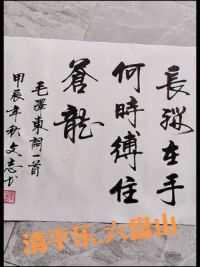 長纓在手
何時縛住
蒼龍
毛澤東詞一首
甲辰年秋文志书
清平乐.六盘山